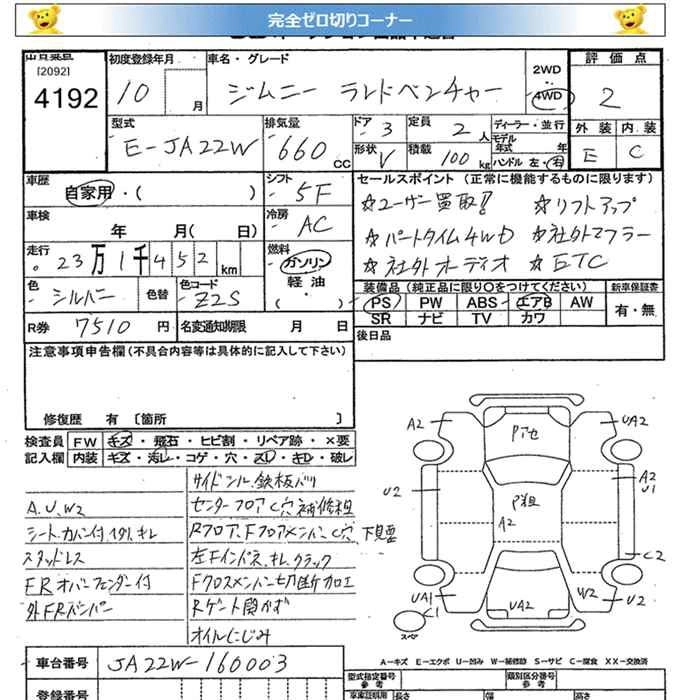 完全ゼロ切りコーナー
[2092]
4192
初度登録年月
10 月
車名・グレード
ジムニー ランドベンチャー
2WD
4WD
評価点
2
型式
E-JA22W
排気量
660 CC
ドア 3
定員 2 人
形状 V
積載 100 kg
ディーラー・並行
モデル年式 年
ハンドル 左・右
外装 内装
E C
車歴
自家用・( )
シフト
5F
車検
年 月( 日)
冷房
AC
走行
23万1千452 km
燃料
ガソリン
軽油
( )
色
シルバー
色替
色コード
Z2S
R券 7510 円
名変通知期限 月 日
セールスポイント(正常に機能するものに限ります)
☆ユーザー買取!! ☆リフトアップ
☆パートタイム4WD ☆社外マフラー
☆社外オーディオ ☆ETC
装備品(純正品に限り〇をつけてください)
新車保証書
PS PW ABS エアB AW
SR ナビ TV カワ
有・無
後日品
注意事項申告欄(不具合内容等は具体的に記入して下さい)
修復歴 有 〔箇所 〕
検査員 FW キズ・飛石・ヒビ割・リペア跡・×要
記入欄 内装 キズ・汚レ・コゲ・穴・スレ・キレ・破レ
サイドシル、鉄板バツ
A.U.W2
センターフロアC穴補修粗
シートカバー付
キレ
RフロアFフロアメンバーC穴 下見要
スタッドレス
左Fインパネ、キレ、クラック
FRオーバーフェンダー付
Fクロスメンバー切断加工
外FRバンパー
Rゲート開かず
オイルにじみ
A2
Pアセ
UA2
U2
P粗
A2
A2
U1
C2
UA1
C1
スペア
UA2
W2
U2
A-キズ E-エクボ U-凹み W-補修跡 S-サビ C-腐食 XX-交換済
車台番号 JA22W-160003
登録番号
型式指定番号
参考
類別区分番号
参考
車庫証明用
参考
長さ 幅 高さ